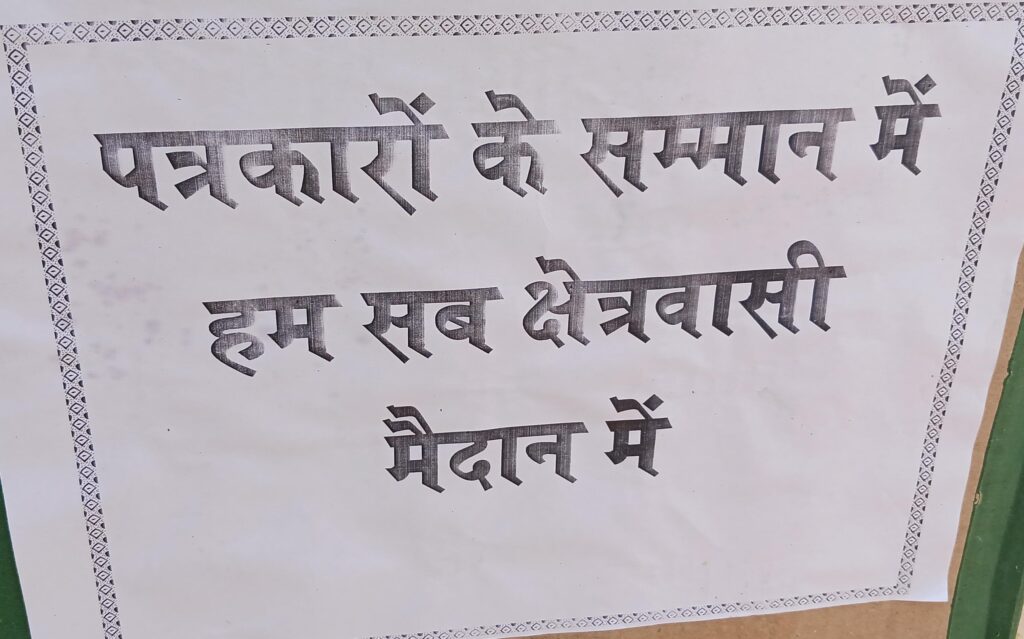 पत्रकारों के सम्मान में
हम सब क्षेत्रवासी
मैदान में